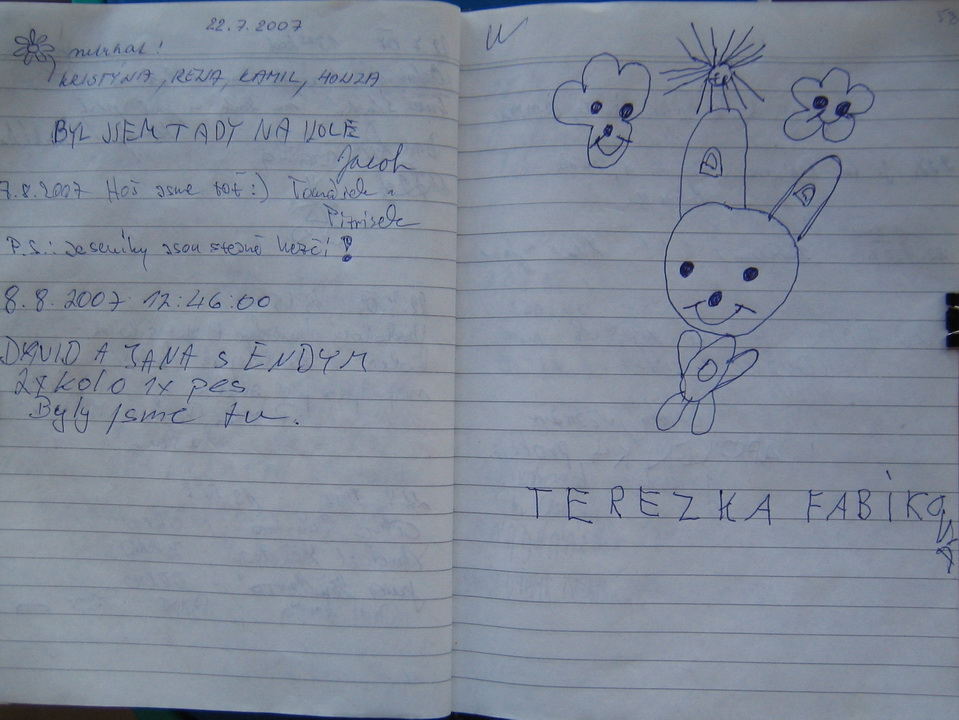 22.7.2007
KRISTÝNA, RENA, KAMIL, HONZA
BYL JSEM TADY NA KOLE
Jacob
7.8.2007 jsme tot :)
Pitrisek
P.S.: Jeseníky jsou stejně hezčí!
8.8.2007 12:46:00
DAVID A JANA s ENDYM
2x kolo 1x pes
Byly jsme tu.
58
TEREZKA FABÍKO